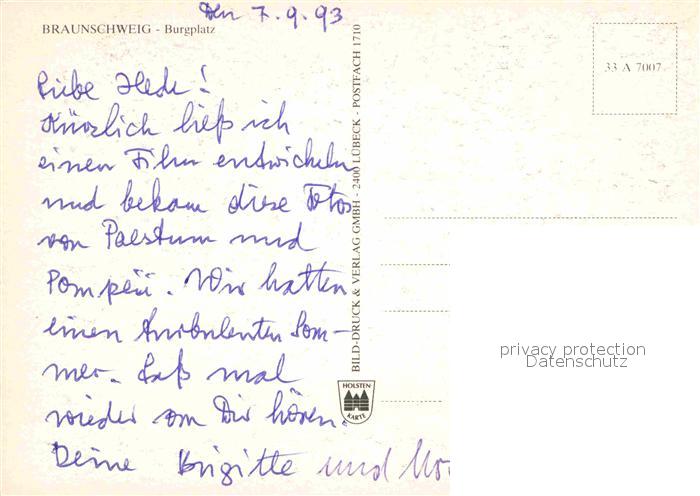 Den 7.9.93
BRAUNSCHWEIG - Burgplatz
33 A 7007
Liebe Hede!
Kürzlich ließ ich
einen Film entwickeln
und bekam diese Fotos
von Paestum und
Pompeii. Wir hatten
einen turbulenten Som-
mer. Laß mal
wieder von Dir hören.
Deine Brigitte und
BILD-DRUCK & VERLAG GMBH - 2400 LÜBECK - POSTFACH 1710
HOLSTEN-
KARTE
privacy protection
Datenschutz